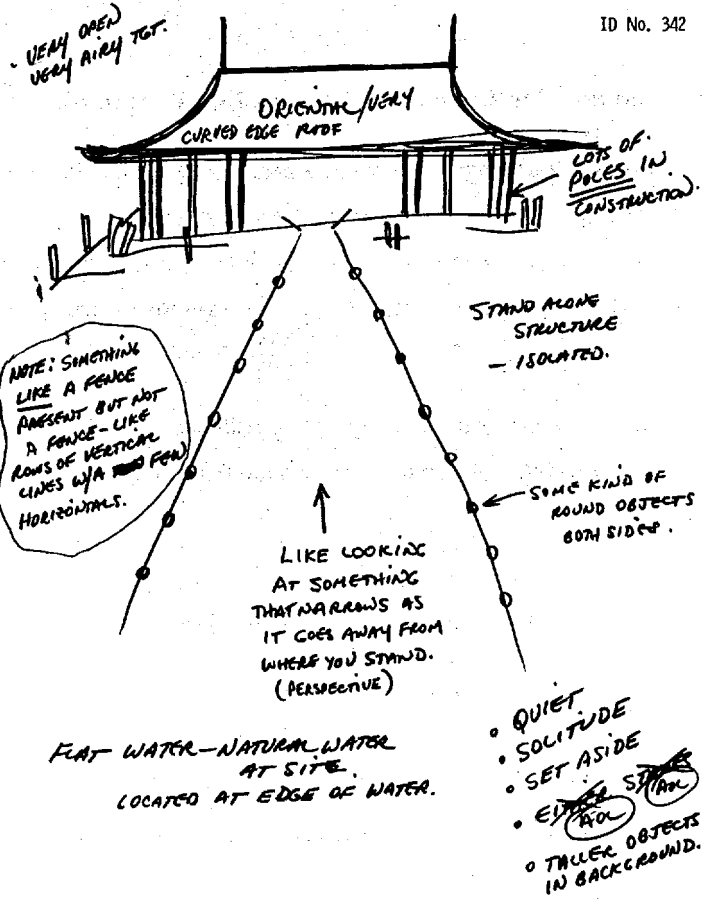 ID No. 342
- VERY OPEN
VERY AIRY TGT.
ORIENTAL/VERY
CURVED EDGE ROOF
LOTS OF
POLES IN
CONSTRUCTION.
STAND ALONE
STRUCTURE
- ISOLATED.
NOTE: SOMETHING
LIKE A FENCE
PRESENT BUT NOT
A FENCE-LIKE
ROWS OF VERTICAL
LINES W/A FEW
HORIZONTALS.
SOME KIND OF
ROUND OBJECTS
BOTH SIDES.
LIKE LOOKING
AT SOMETHING
THAT NARROWS AS
IT GOES AWAY FROM
WHERE YOU STAND.
(PERSPECTIVE)
FLAT WATER-NATURAL WATER
AT SITE.
LOCATED AT EDGE OF WATER.
• QUIET
• SOLITUDE
• SET ASIDE
• AOL AOL
• TALLER OBJECTS
IN BACKGROUND.